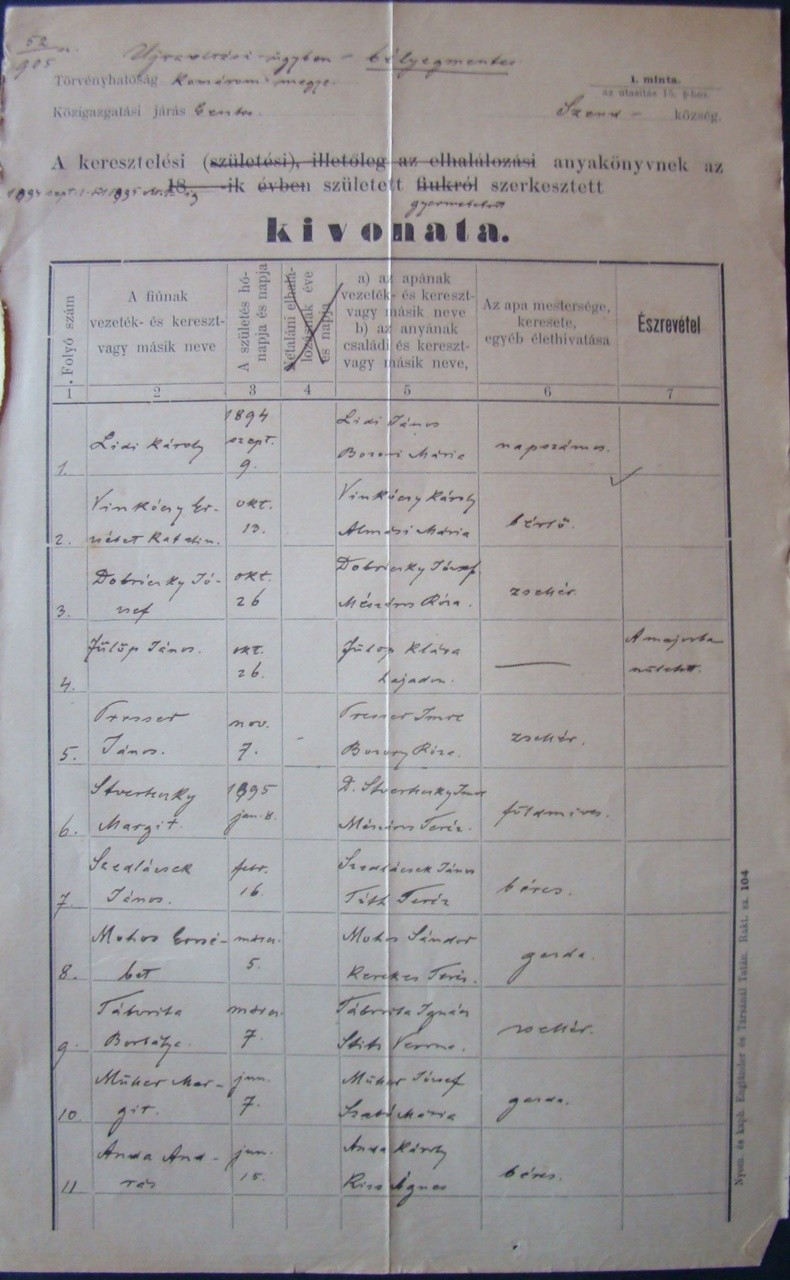 52
905
Újraoltási ügyben - bélyegmentes
Törvényhatóság Komárom megye.
1. minta.
az utasítás 15. §-hoz.
Közigazgatási járás
Szend - község.
A keresztelési (születési), illetőleg az elhalálozási anyakönyvnek az
18 -ik évben született fiukról szerkesztett
gyermekekről
kivonata.
Folyó szám
A fiúnak
vezeték- és kereszt-
vagy másik neve
A születés hó-
napja és napja
Netaláni elhalá-
lozásnak éve
és napja
a) az apának
vezeték- és kereszt-
vagy másik neve
b) az anyának
családi és kereszt-
vagy másik neve,
Az apa mestersége,
keresete,
egyéb élethivatása
Észrevétel
1. 2 3 4 5 6 7
1894
Lidi János
Lidi Károly szept. napszámos.
1. 9. Mária
Vinkóczy Er- okt. Vinkóczy Károly
bérlő.
2. zsébet Katalin. 13. Almási Mária
Dobriczky Jó- okt. Dobriczky József
zsellér.
3. zsef 26 Mészáros Róza.
Fülöp János. okt. Fülöp Klára A majorba
4. 26. hajadon. született.
Presser nov. Presser Imre
zsellér.
5. János. 7. Róza.
1895 D. Imre
földmives.
6. Margit. jan. 8. Mészáros Teréz.
Szedlácsek febr. Szedlácsek János
béres.
7. János. 16. Tóth Teréz
Mohos Erzsé- márcz. Mohos Sándor
gazda.
8. bet 5. Kerekes Teréz.
Táborita márcz. Táborita Ignácz
zsellér.
9. Borbála. 7.
Müller Mar- jun. Müller József
gazda.
10. git. 7. Szabó Mária
Anda And- jun. Anda Károly
béres.
11 rás 15. Kiss Ágnes
Nyom. és kaph. Engländer és Társánál Tatán. Rakt. sz. 104